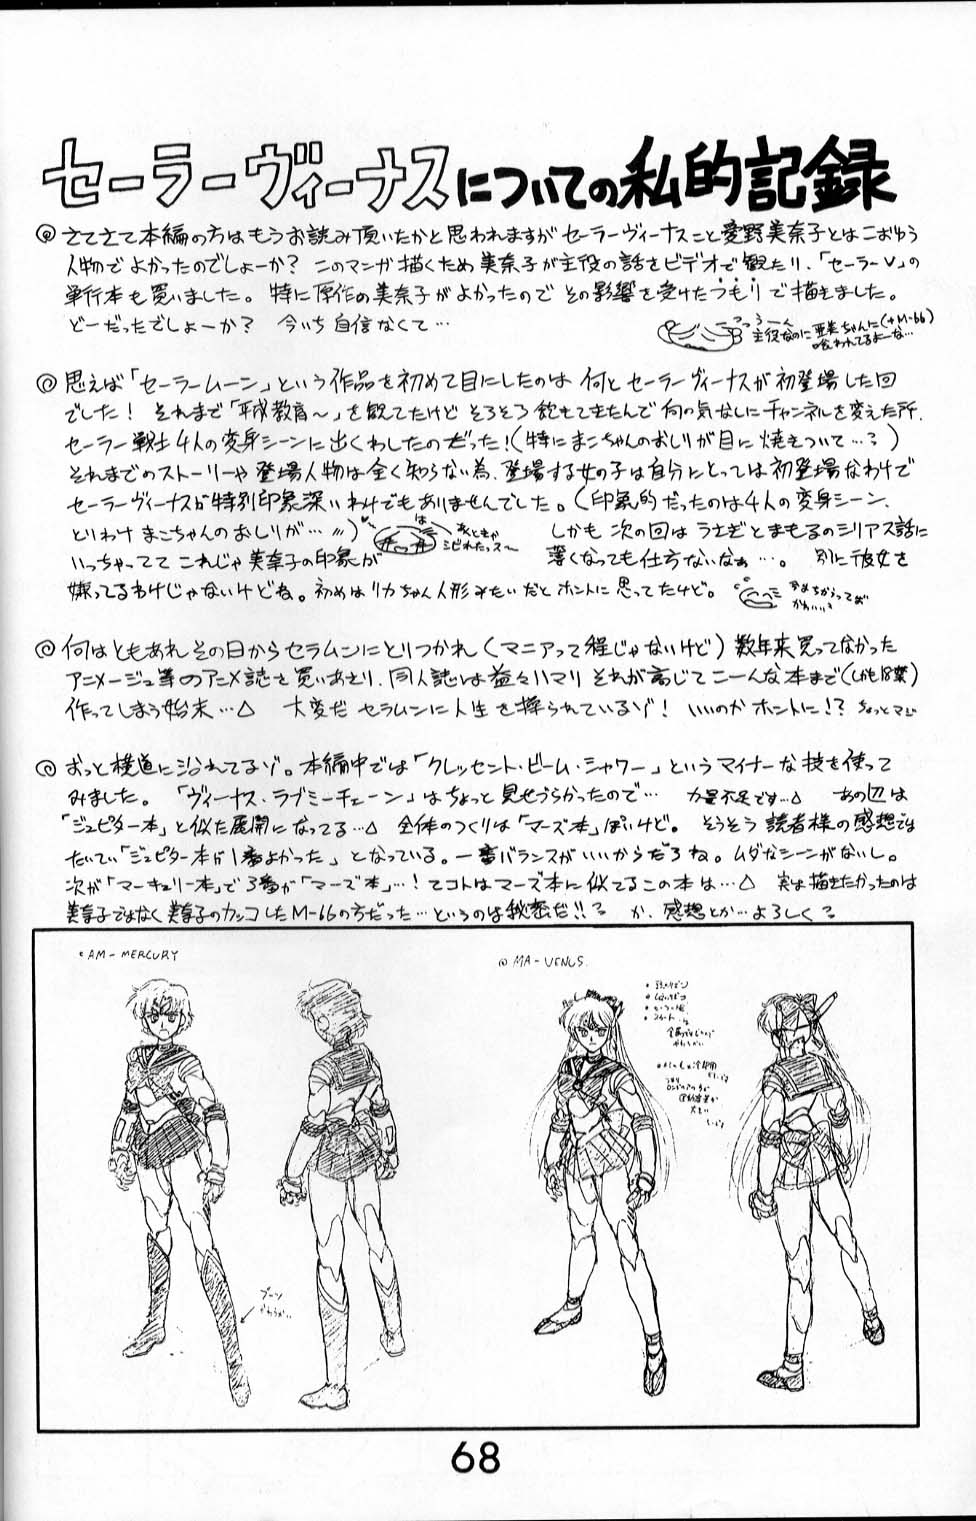 セーラーヴィーナスについての私的記録
◎ さてさて本編の方はもうお読み頂いたかと思われますがセーラーヴィーナスこと愛野美奈子とはこおゆう
人物でよかったのでしょーか? このマンガ描くため美奈子が主役の話をビデオで観たり、「セーラーV」の
単行本も買いました。特に原作の美奈子がよかったので その影響を受けたつもりで描きました。
どーだったでしょーか? 今いち自信なくて…
つろーん
主役なのに亜美ちゃんに(+M-66)
喰われてるよーな…
◎ 思えば「セーラームーン」という作品を初めて目にしたのは 何とセーラーヴィーナスが初登場した回
でした! それまで「平成教育〜」を観てたけど そろそろ飽きてきたんで何の気なしにチャンネルを変えた所、
セーラー戦士4人の変身シーンに出くわしたのだった!(特にまこちゃんのおしりが目に焼きついて…?)
それまでのストーリーや登場人物は全く知らない為、登場する女の子は自分にとっては初登場なわけで
セーラーヴィーナスが特別印象深いわけでもありませんでした。(印象的だったのは4人の変身シーン、
とりわけまこちゃんのおしりが…〃) しかも 次の回は うさぎとまもるのシリアス話に
は
シビれたっス〜
いっちゃってて これじゃ美奈子の印象が 薄くなっても仕方ないなぁ…。 別に彼女を
嫌ってるわけじゃないけどね。初めはリカちゃん人形みたいだとホントに思ってたけど。
◎ 何はともあれその日からセラムンにとりつかれ(マニアって程じゃないけど)数年来買ってなかった
アニメージュ等のアニメ誌を買いあさり、同人誌は益々ハマリ それが高じてこーんな本まで(しかも18禁)
作ってしまう始末…△ 大変だ セラムンに人生を操られているゾ! いいのかホントに!? ちょっとマジ
◎ おっと横道に沿れてるゾ。本編中では「クレッセント・ビーム・シャワー」というマイナーな技を使って
みました。「ヴィーナス・ラブミーチェーン」はちょっと見せづらかったので… 力量不足です…△ あの辺は
「ジュピター本」と似た展開になってる…△ 全体のつくりは「マーズ本」ぽいけど。 そうそう読者様の感想では
たいてい「ジュピター本が1番よかった」となっている。一番バランスがいいからだろね。ムダなシーンがないし。
次が「マーキュリー本」で3番が「マーズ本」…! てコトはマーズ本に似てるこの本は…△ 実は描きたかったのは
美奈子ではなく美奈子のカッコしたM-66の方だった…というのは秘密だ!!? か、感想とか…よろしく?
• AM-MERCURY
◎ MA-VENUS.
ブーツ
68